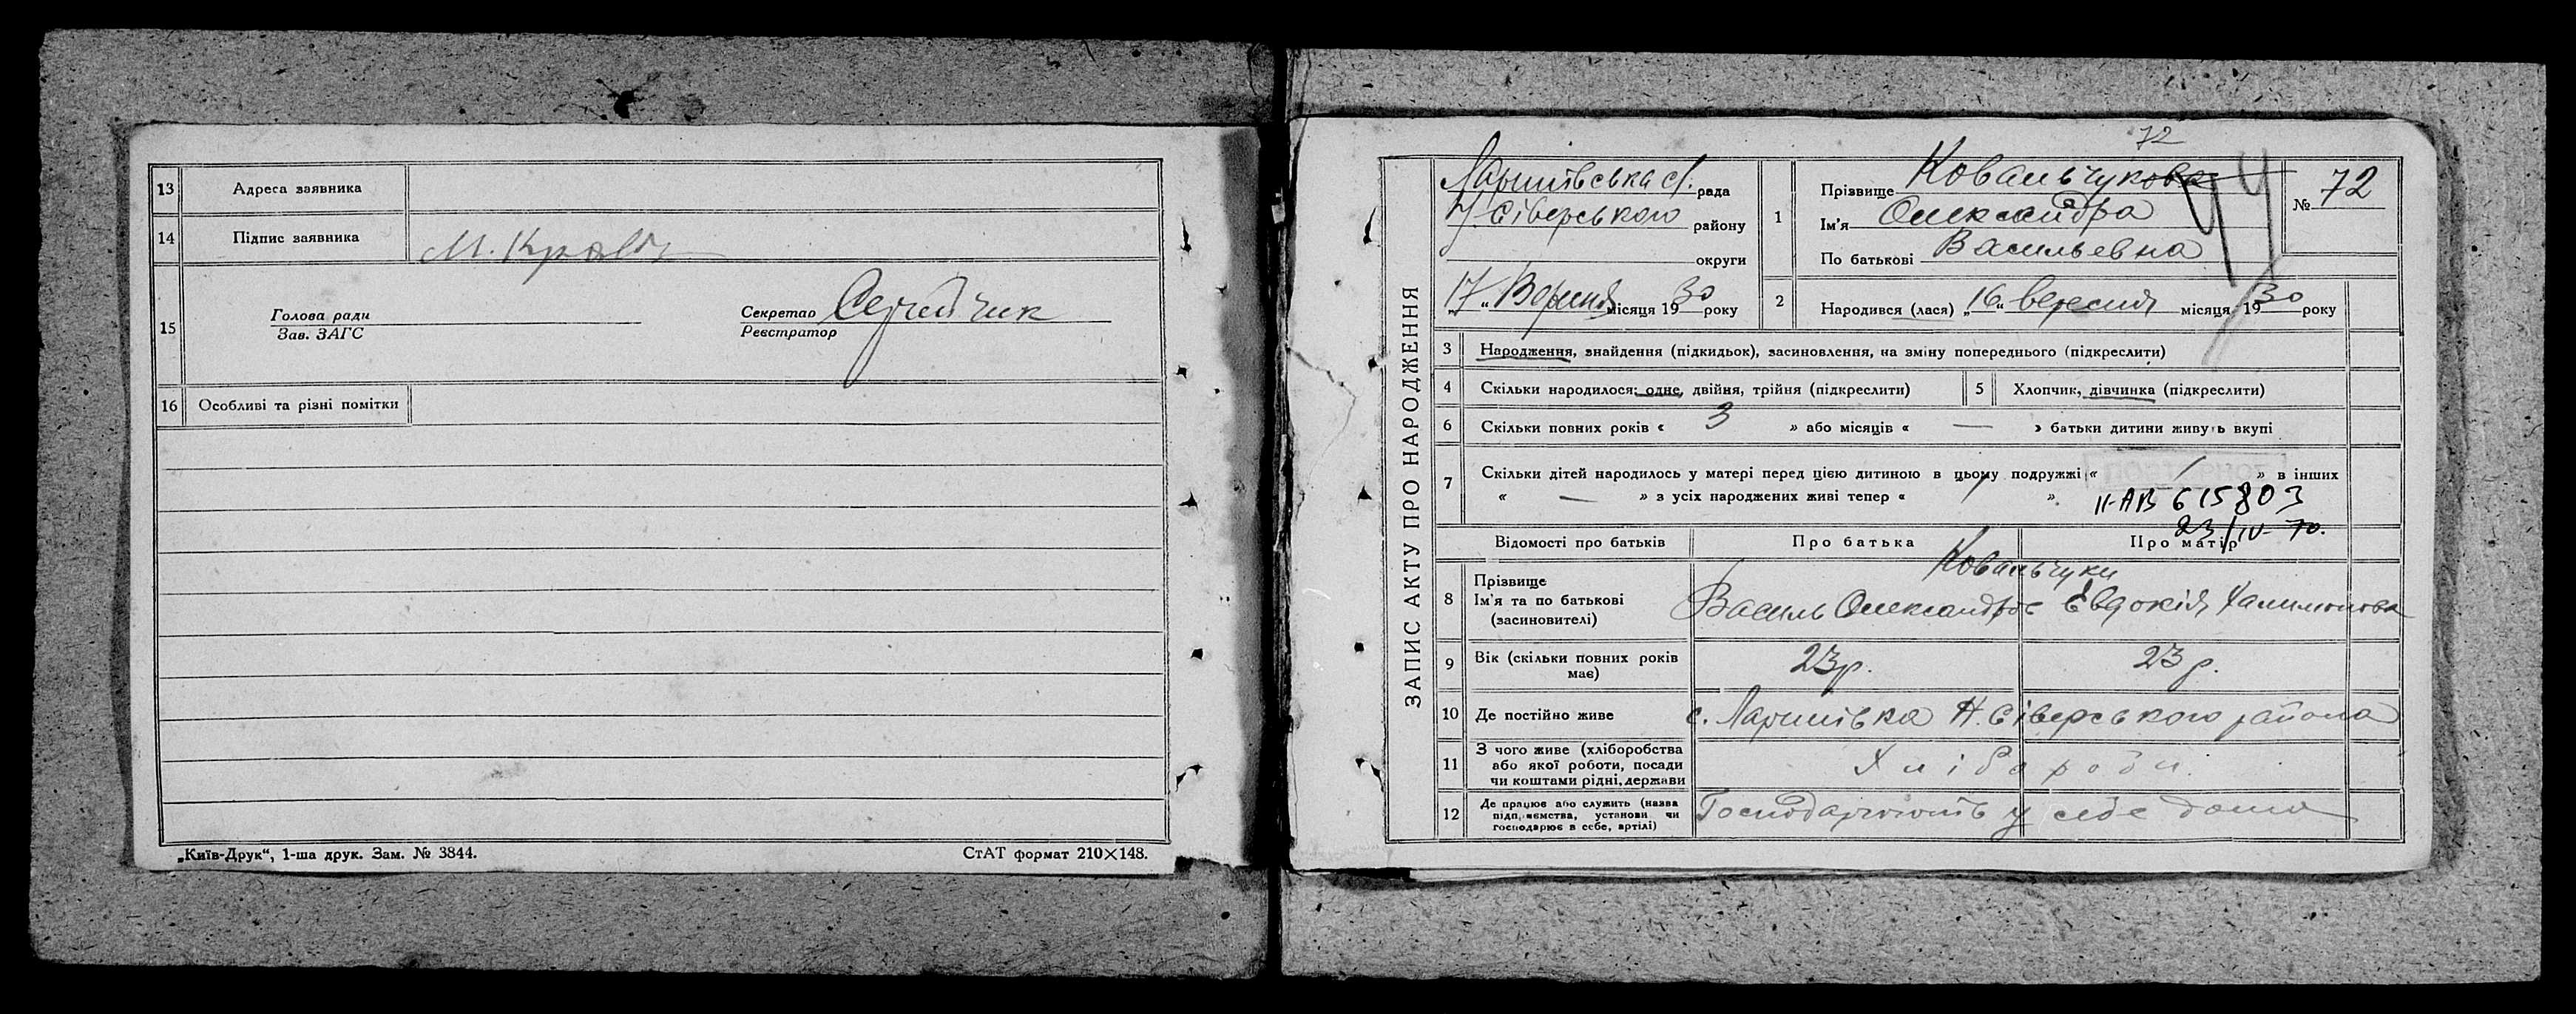 13 Адреса заявника
14 Підпис заявника М. Кравч
15 Голова ради
Зав. ЗАГС
Секретар
Реєстратор
16 Особливі та різні помітки
„Київ-Друк“, 1-ша друк. Зам. № 3844.
СтАТ формат 210×148.
72
ЗАПИС АКТУ ПРО НАРОДЖЕННЯ
Ларинівська с/. рада
Н. Сіверського району
округи
„17“ Вересня місяця 1930 року
1 Прізвище Ковальчукова
Ім'я Олександра
По батькові Васильевна
№ 72
2 Народився (лася) „16“ вересня місяця 1930 року
3 Народження, знайдення (підкидьок), засиновлення, на зміну попереднього (підкреслити)
4 Скільки народилося: одне, двійня, трійня (підкреслити)
5 Хлопчик, дівчинка (підкреслити)
6 Скільки повних років « 3 » або місяців « — » батьки дитини живуть вкупі
7 Скільки дітей народилось у матері перед цією дитиною в цьому подружжі « 1 » в інших
« — » з усіх народжених живі тепер « 1 »
II-АВ 615803
23/IV-70.
Відомості про батьків Про батька Про матір
Ковальчуки
8 Прізвище
Ім'я та по батькові
(засновителі)
Василь Олександров Евдокія Халимонова
9 Вік (скільки повних років
має)
23 р. 23 р.
10 Де постійно живе с. Ларинівка Н. Сіверського района
11 З чого живе (хліборобства
або якої роботи, посади
чи коштами рідні, держави
Хлібороби
12 Де працює або служить (назва
підприємства, установи чи
господарює в себе, артілі)
Господарюють у себе дома